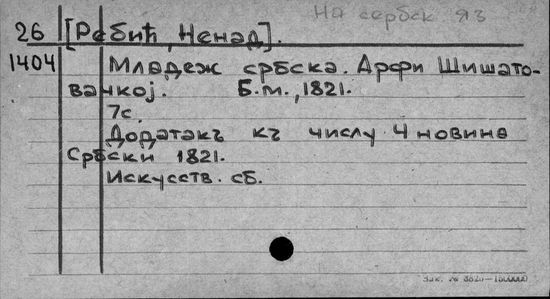 На сербск яз
26 [Ребић, Ненад].
1404 Младеж србска. Арфи Шишато-
вачкој. Б.м., 1821.
7с.
Додатакъ къ числу 4 новине
Србски 1821.
Искусств. сб.
Зак. № 3820—1500000